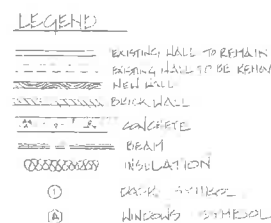 LEGEND
EXISTING WALL TO REMAIN
EXISTING WALL TO BE REMOV
NEW WALL
BRICK WALL
CONCRETE
BEAM
INSULATION
1 SYMBOL
A WINDOWS SYMBOL